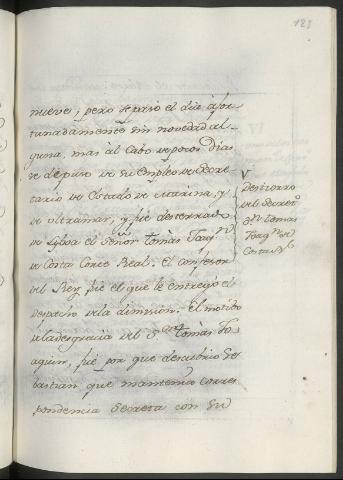 123
nueve; pero se pasó el dia afor-
tunadamente sin novedad al-
guna, mas al Cabo de pocos Dias
se depuso de su Empleo de Secre-
tario de Estado de Marina, y
de Ultramar, y fue desterrado
de Lisboa el Señor Tomàs Joaqn
de Costa Corte Real. El confesor
del Rey, fue el que le entregó el
despacho de la dimision. El motibo
de la desgracia del Sor Tomàs Jo-
aquin, fue por que descubrio Se-
bastian que mantenia corres-
pondencia Secreta con Su
V
Destierro
del Secreto
Dn Tomas
Joaqn de
Costa